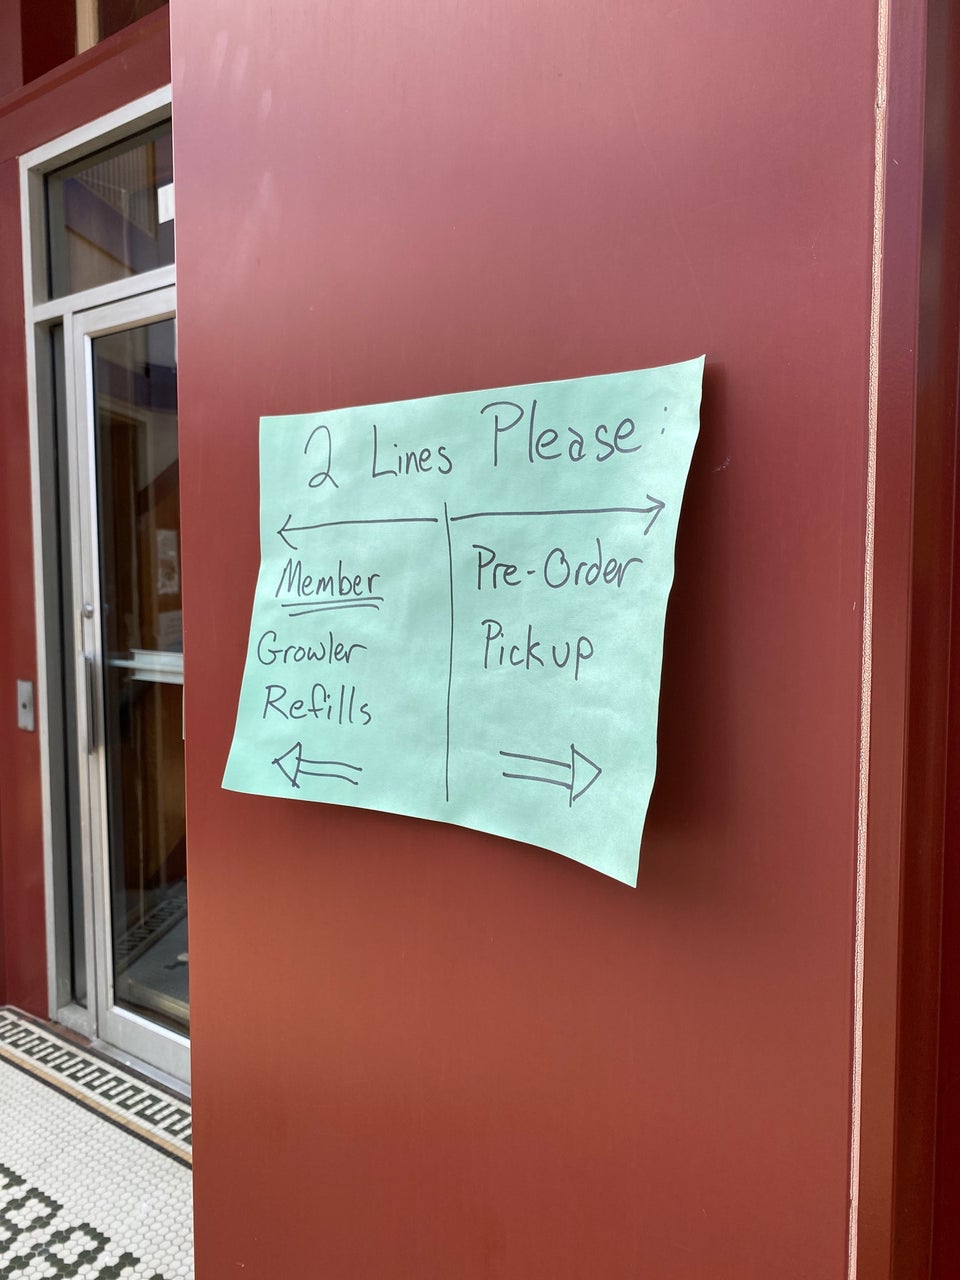 2 Lines Please:
Member
Growler
Refills
Pre-Order
Pickup